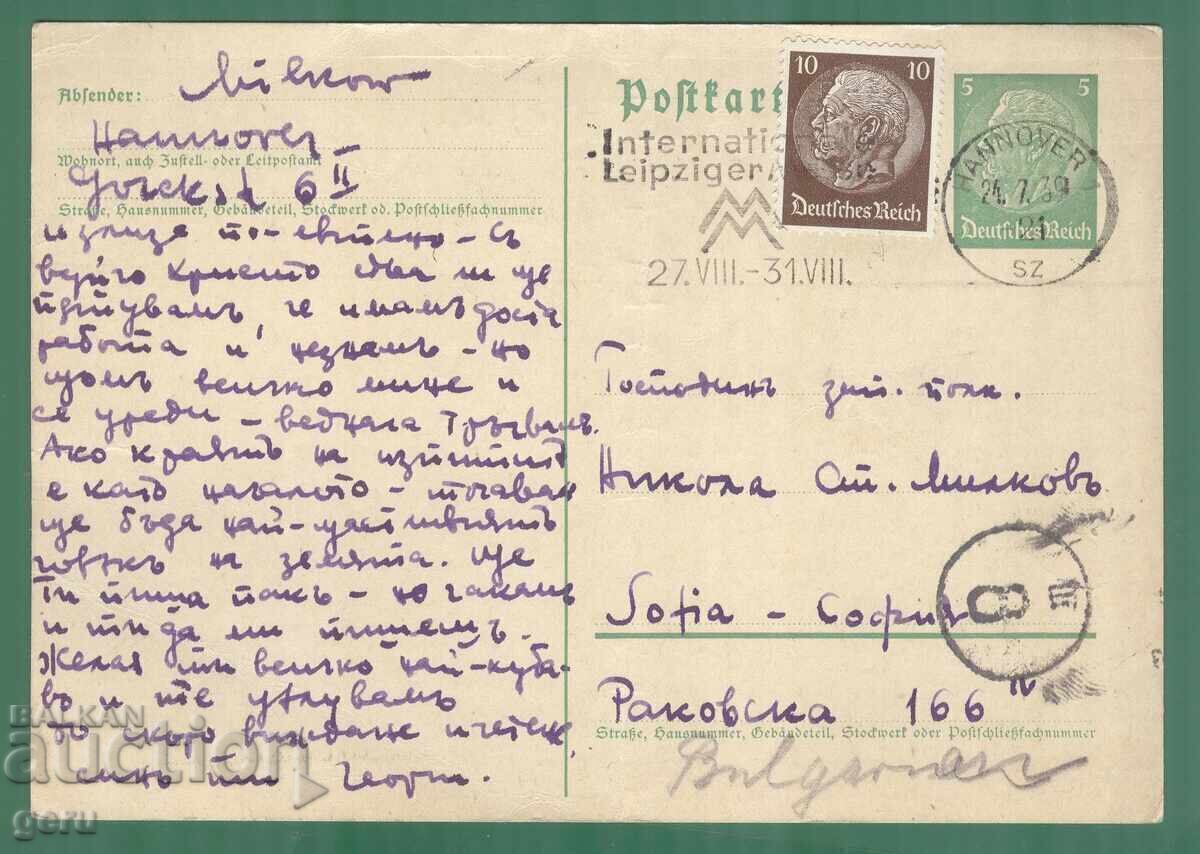 Absender: Milkow
Hannover
Wohnort, auch Zustell- oder Leitpostamt
6 II
Straße, Hausnummer, Gebäudeteil, Stockwerk od. Postschließfachnummer
излиза по-евтино – съ
вуйчо Христо два ще
пътувамъ, че имамъ доста
работа и незнамъ – но
щомъ всичко мине и
се уреди – веднага тръгвамъ.
Ако краятъ на изпитите
е като началото – тогава
ще бъда най-щастливиятъ
човекъ на земята. Ще
ти пиша пакъ – но чакамъ
и ти да ми пишешъ.
Желая ти всичко най-хуба-
во и те целувамъ
до скоро виждане и четене,
синъ ти Георги.
Postkarte
10 10
Deutsches Reich
5 5
Deutsches Reich
Internatio
Leipziger
27.VIII.-31.VIII.
HANNOVER
24.7.39
21
SZ
Господинъ зап. полк.
Никола Ст. Милковъ
Sofia – София
Раковска 166 IV
Straße, Hausnummer, Gebäudeteil, Stockwerk oder Postschließfachnummer
Bulgarien
8
BALKAN
auction
geru